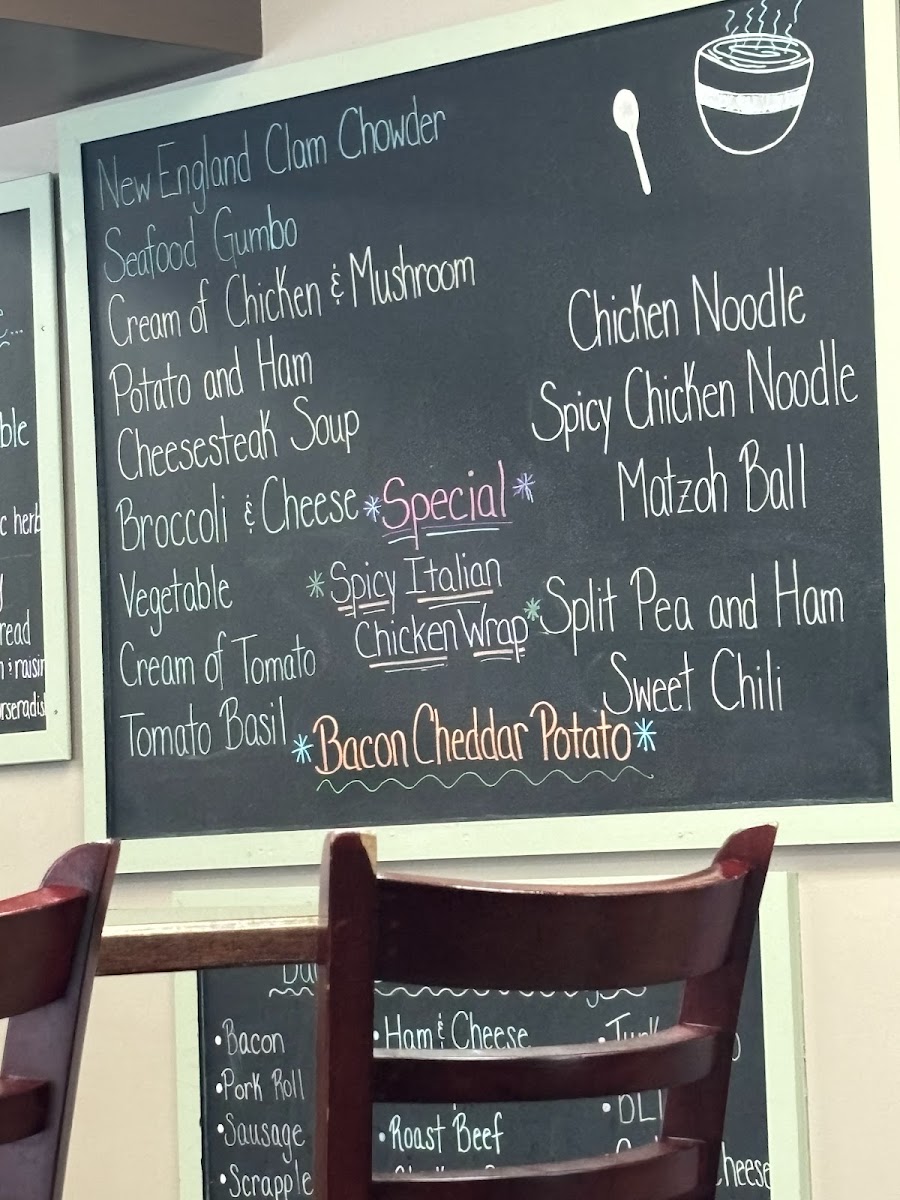 New England Clam Chowder
Seafood Gumbo
Cream of Chicken & Mushroom
Potato and Ham
Cheesesteak Soup
Broccoli & Cheese
Vegetable
Cream of Tomato
Tomato Basil
*Special*
*Spicy Italian
Chicken Wrap*
*Bacon Cheddar Potato*
Chicken Noodle
Spicy Chicken Noodle
Matzoh Ball
Split Pea and Ham
Sweet Chili
•Bacon
•Pork Roll
•Sausage
•Scrapple
•Ham & Cheese
•Roast Beef